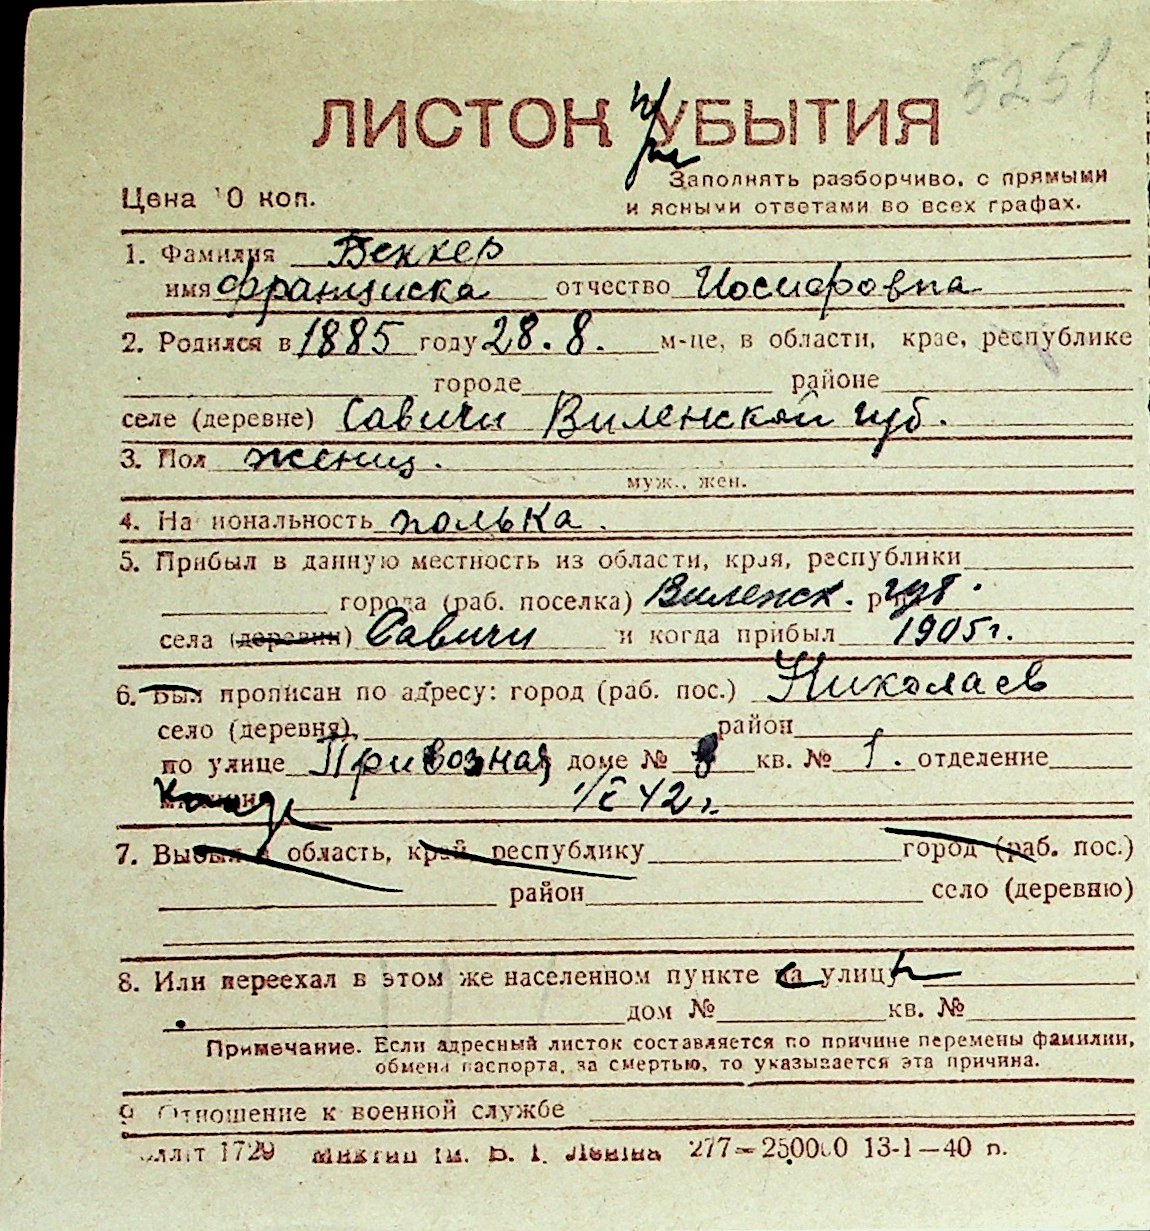 5251
ЛИСТОК УБЫТИЯ
Цена 10 коп.
Заполнять разборчиво, с прямыми
и ясными ответами во всех графах.
1. Фамилия Беккер
имя Франциска отчество Иосифовна
2. Родился в 1885 году 28.8. м-це, в области, крае, республике
городе районе
селе (деревне) Савичи Виленской губ.
3. Пол женщ.
муж., жен.
4. Национальность полька.
5. Прибыл в данную местность из области, края, республики
города (раб. поселка) Виленск. губ.
села (деревни) Савичи и когда прибыл 1905 г.
6. Был прописан по адресу: город (раб. пос.) Николаев
село (деревня), район
по улице Привозная доме № 8 кв. № 1. отделение
42 г.
7. Выбыл в область, край, республику город (раб. пос.)
район село (деревню)
8. Или переехал в этом же населенном пункте на улицу
дом № кв. №
Примечание. Если адресный листок составляется по причине перемены фамилии,
обмена паспорта, за смертью, то указывается эта причина.
9. Отношение к военной службе
1729 277—250000 13-1—40 п.